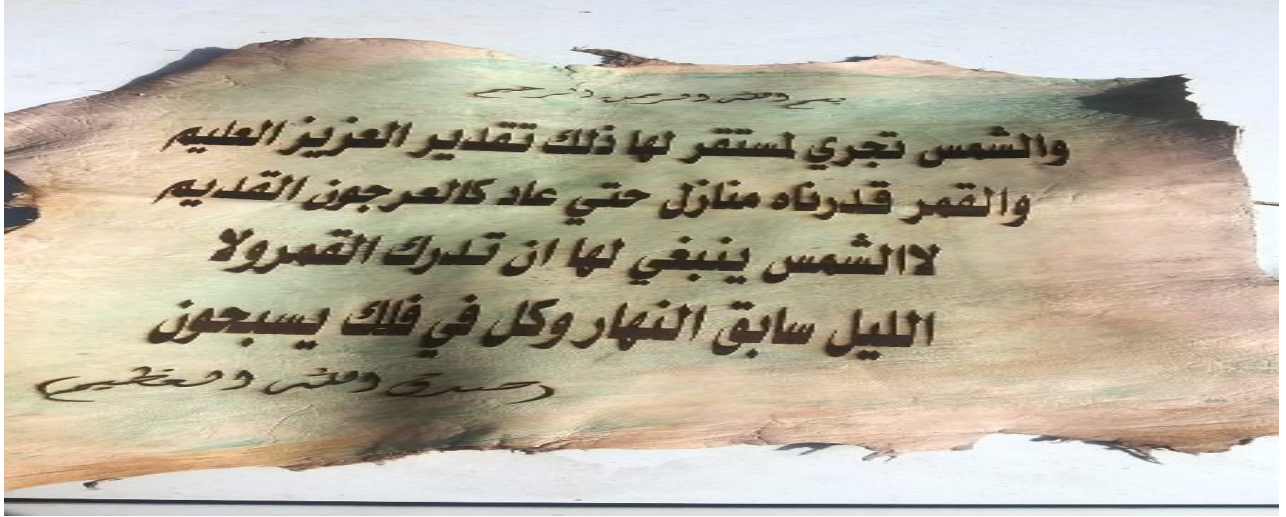 بسم الله الرحمن الرحيم
والشمس تجري لمستقر لها ذلك تقدير العزيز العليم
والقمر قدرناه منازل حتي عاد كالعرجون القديم
لاالشمس ينبغي لها ان تدرك القمرولا
الليل سابق النهار وكل في فلك يسبحون
(صدق الله العظيم)